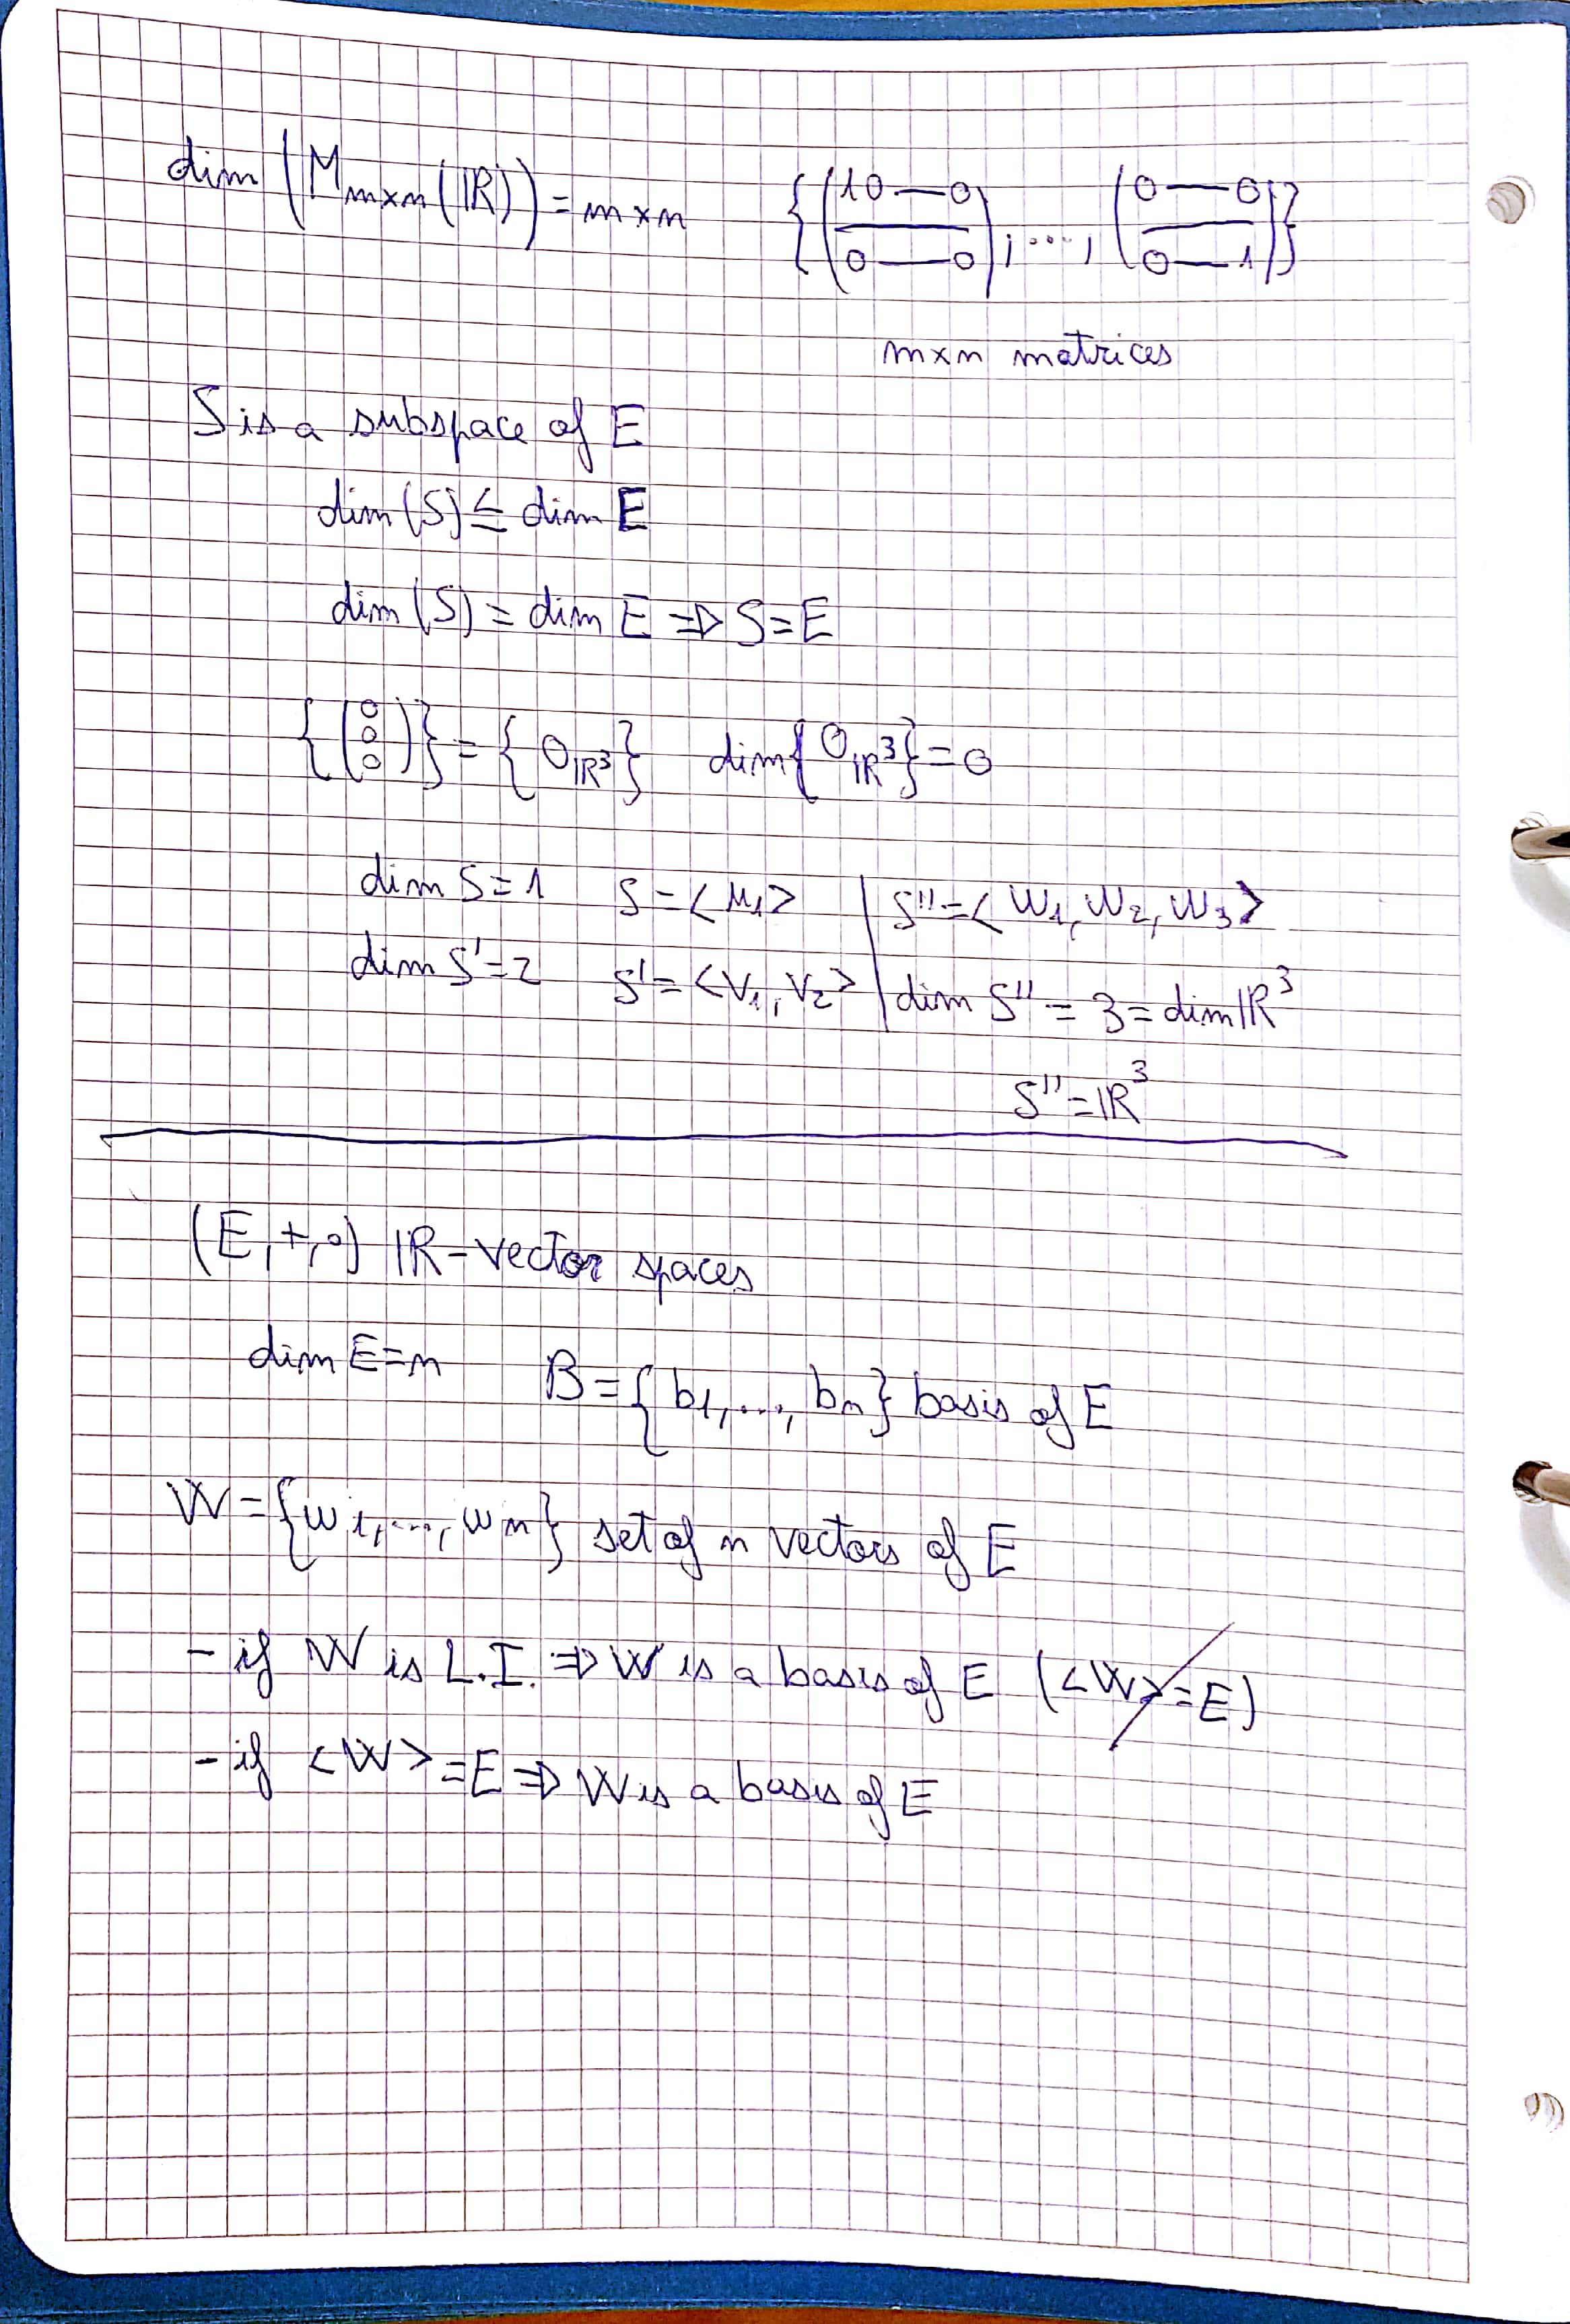 dim (M_{m×n}(ℝ)) = m×n   { (10—0 / 0—0), ..., (0—0 / 0—1) }
m×n matrices
S is a subspace of E
dim (S) ≤ dim E
dim (S) = dim E ⇒ S=E
{ (0 0 0) } = { 0_{ℝ³} }   dim{ 0_{ℝ³} } = 0
dim S = 1   S = <u₁> | S'' = < w₁, w₂, w₃ >
dim S' = 2   S' = <v₁, v₂> | dim S'' = 3 = dim ℝ³
S'' = ℝ³
(E, +, ∘) ℝ-vector spaces
dim E = n   B = { b₁, ..., bₙ } basis of E
W = { w₁, ..., wₙ } set of n vectors of E
- if W is L.I. ⇒ W is a basis of E (<W> = E)
- if <W> = E ⇒ W is a basis of E